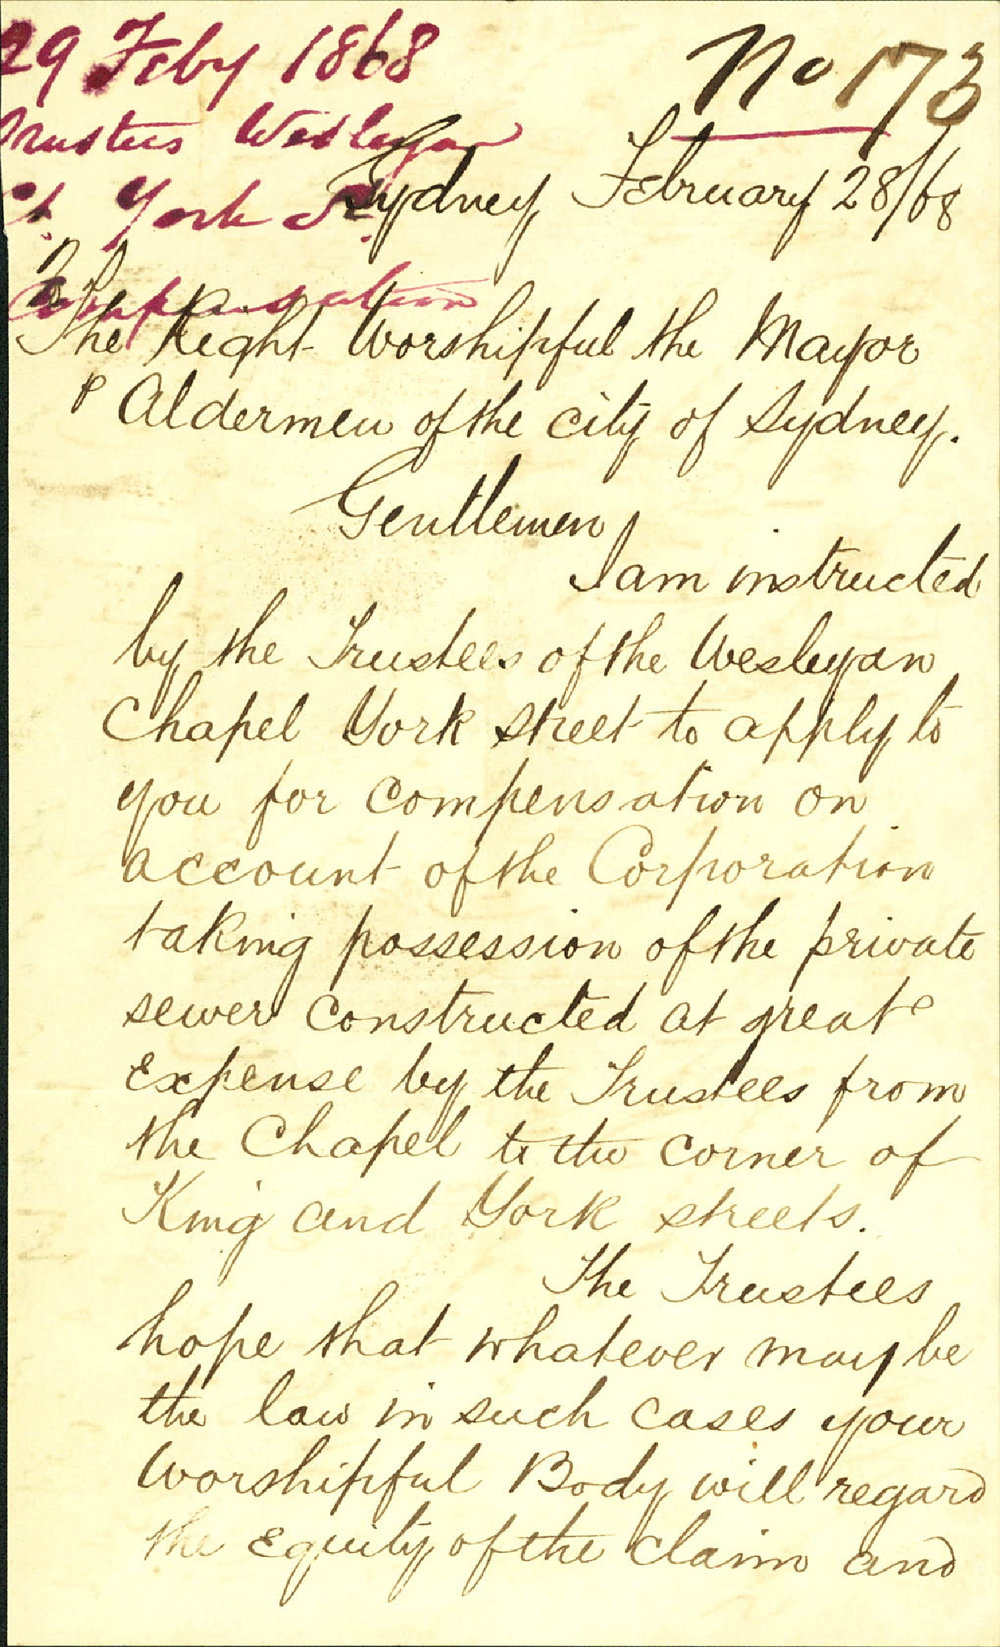 29 Feby 1868
No 173
Trustees Wesleyan
Ch. York St.
Compensation
Sydney February 28/68
The Right Worshipful the Mayor
& Aldermen of the city of Sydney.
Gentlemen
I am instructed
by the Trustees of the Wesleyan
Chapel York street to apply to
you for compensation on
account of the Corporation
taking possession of the private
sewer constructed at great
expense by the Trustees from
the Chapel to the corner of
King and York streets.
The Trustees
hope that whatever may be
the law in such cases your
Worshipful Body will regard
the equity of the claim and